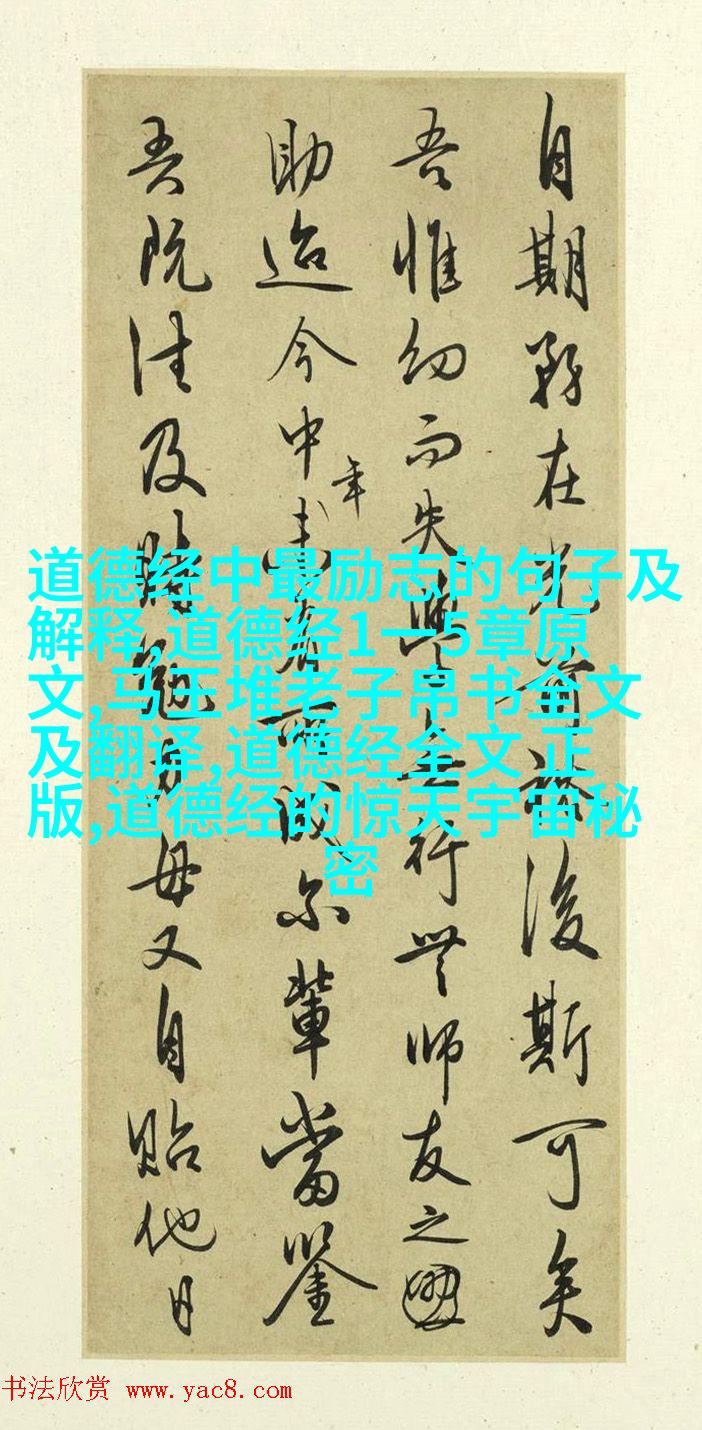 自期務在光前裕後斯可矣
吾惟幼而失學無行無師友之
助迨今中年未有所成尔輩當鑒
吾既往及時勉力毋又自貽他日
道德经中最励志的句子及
解释,道德经1一5章原
文,马王堆老子帛书全文
及翻译,道德经全文 正
版,道德经的惊天宇宙秘
密
书法欣赏 www.yac8.com